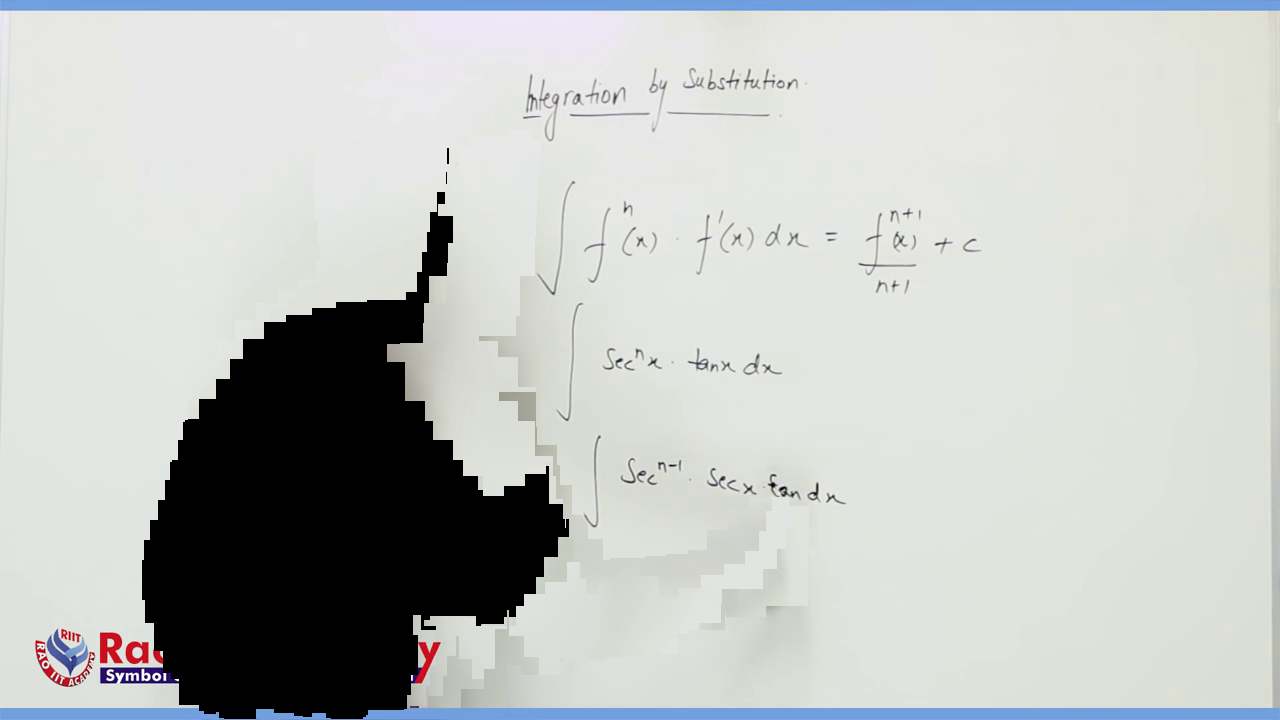 Integration by Substitution.
∫ fⁿ(x) · f'(x) dx = fⁿ⁺¹(x) / n+1 + c
∫ Secⁿx · tanx dx
∫ Secⁿ⁻¹ · Secx · tan dx
RIIT
RAO IIT ACADEMY
Symbol